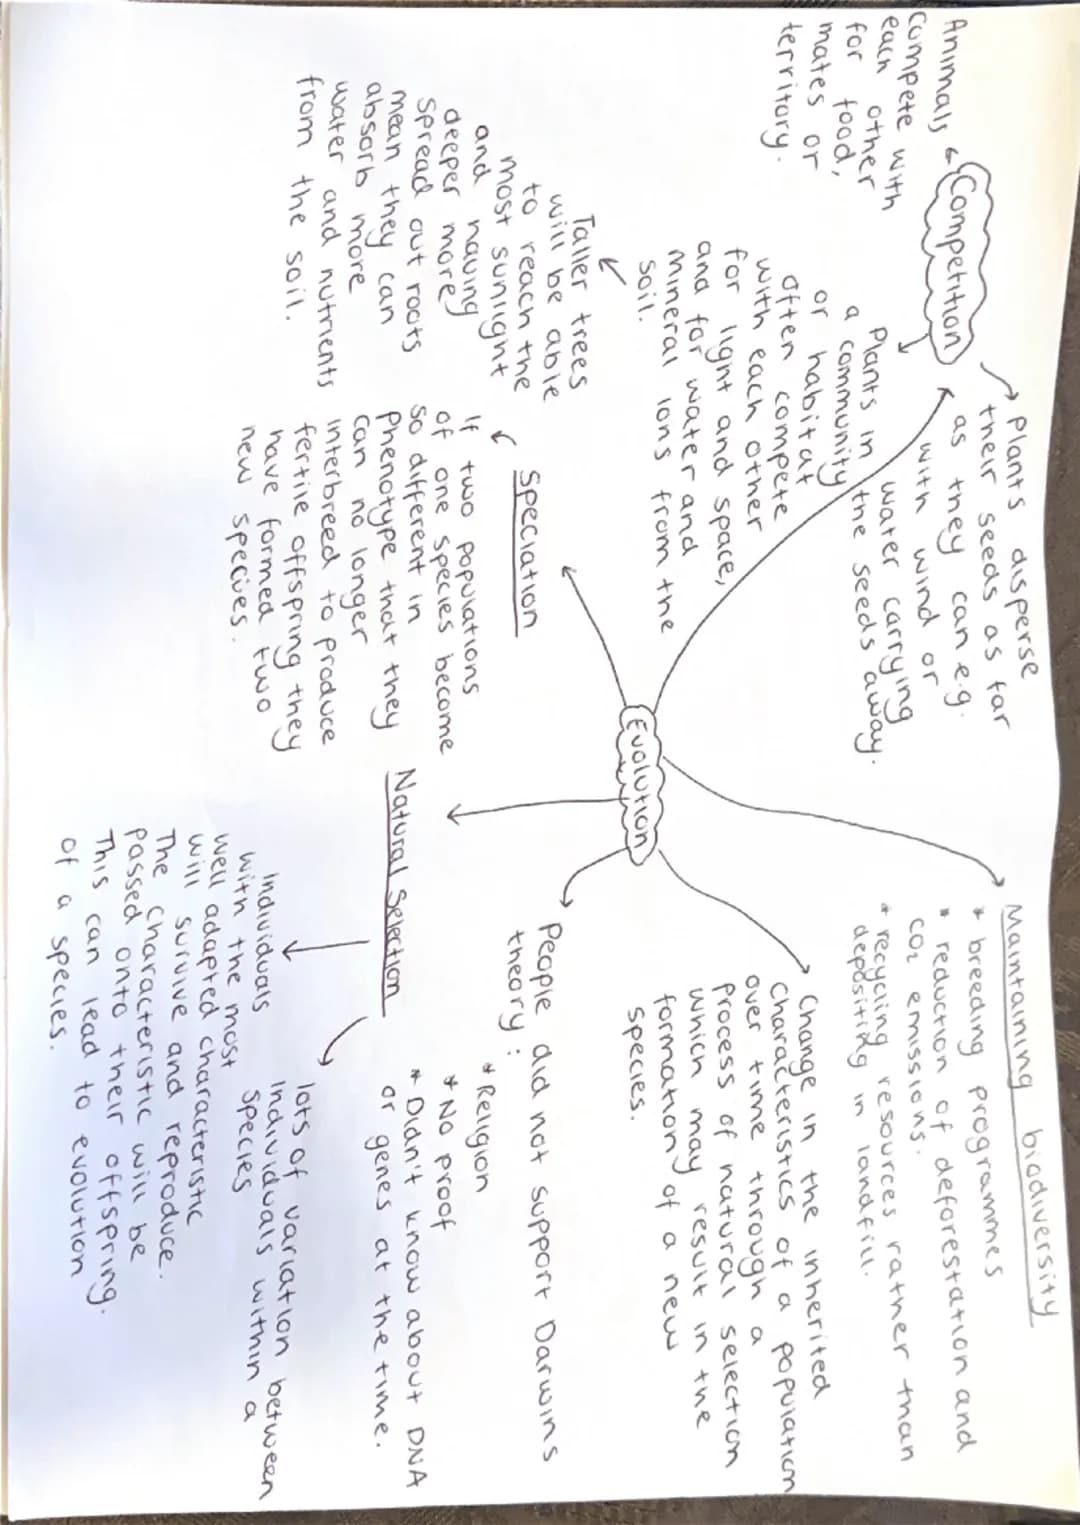 Competition
Animals
compete with
each other
for food,
mates or
territory.
Plants disperse
their seeds as far
as they can e.g.
with wind or
water carrying
the seeds away.
Plants in
a community
or habitat
often compete
with each other
for light and space,
and for water and
mineral ions from the
soil.
Taller trees
will be able
to reach the
most sunlight
and having
deeper more
spread out roots
mean they can
absorb more
water and nutrients
from the soil.
Evolution
Speciation
If two populations
of one species become
so different in
phenotype that they
can no longer
interbreed to produce
fertile offspring they
have formed two
new species.
Maintaining biodiversity
* breeding programmes
* reduction of deforestation and
CO2 emissions.
* recycling resources rather than
depositing in landfill.
Change in the inherited
characteristics of a population
over time through a
process of natural selection
which may result in the
formation of a new
species.
People did not support Darwins
theory:
* Religion
* No proof
* Didn't know about DNA
or genes at the time.
Natural Selection
lots of variation between
individuals within a
species
individuals
with the most
well adapted characteristic
will survive and reproduce.
The characteristic will be
passed onto their offspring.
This can lead to evolution
of a species.